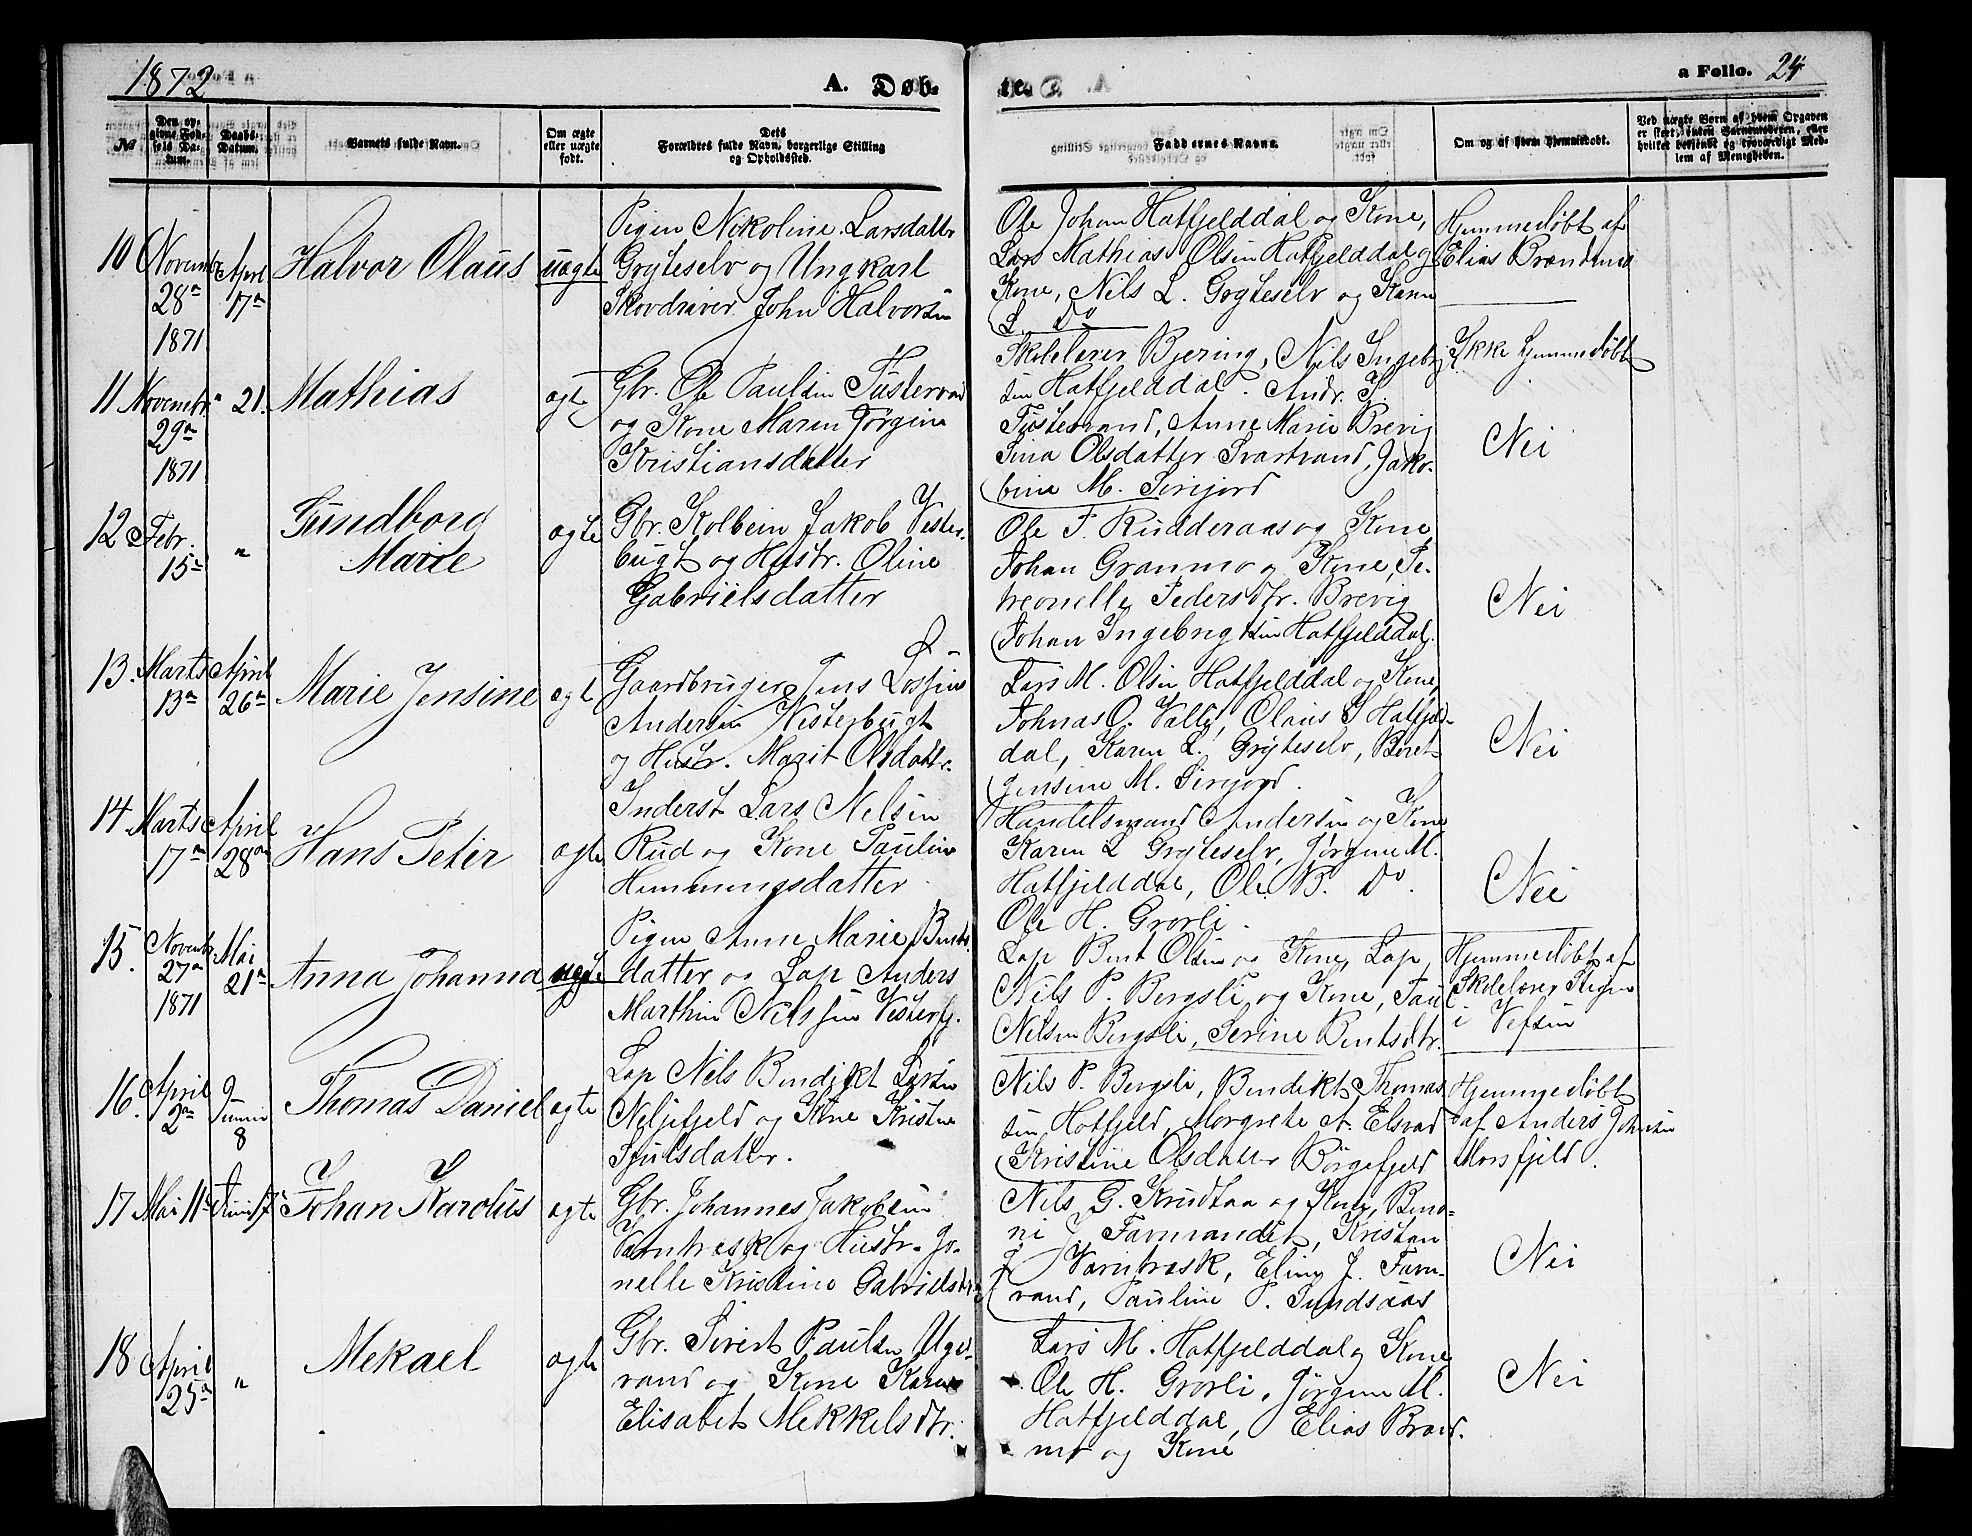 1872
A. Døb-
te.
a Folio. 24
№
Den op-
givne Fød-
sels Da-
tum.
Daabs-
Datum.
Barnets fulde Navn.
Om ægte
eller uægte
født.
Dets
Forældres fulde Navn, borgerlige Stilling
og Opholdssted.
Faddernes Navne.
Om og af hvem hjemmedøbt.
Ved uægte Børn af hvem Opgaven
er skeet, enten Barnemoderen, eller
hvilket bekjendt og troværdigt Med-
lem af Menigheden.
10 Novembr 28de 1871
April 17de
Halvor Olaus
uægte
Pigen Nikoline Larsdatter
Gryteselv og Ungkarl
Skovdriver John Halvorsen
Ole Johan Hatfjelddal og Kone,
Lars Mathias Olsen Hatfjelddal og
Kone, Nils L. Gryteselv og Karen
L. Do
Hjemmedøbt af
Elias Brændmo
11 Novembr 29de 1871
21.
Mathias
ægte
Gbr. Ole Paulsen Fustervand
og Kone Maren Jørgine
Kristiansdatter
Skolelærer Bjering, Nils Ingebrigt-
sen Hatfjelddal. Andr. J.
Fustervand, Anne Marie Brevig
Sina Olsdatter Svartvand, Jako-
bine M. Sirijord
Ikke hjemmedøbt
Nei
12 Febr. 15de
"
Gundborg
Marie
ægte
Gbr. Kolbein Jakob Vester-
bugt og Hustr. Oline
Gabrielsdatter
Ole J. Rudderaas og Kone
Johan Granmo og Kone, Pe-
treonelle Pedersdtr. Brevig
Johan Ingebrigtsen Hatfjelddal.
Nei
13. Marts 13de
April 26de
Marie Jensine
ægte
Gaardbruger Jens Losjus
Andersen Vesterbugt
og Hustr. Marit Olsdatter
Lars M. Olsen Hatfjelddal og Kone,
Johnas O. Valle, Olaus S Hatfjeld-
dal, Karen L. Gryteselv, Beret-
Jensine M. Sirijord.
Nei
14 Marts 17de
April 28de
Hans Peter
ægte
Inderst Lars Nelsen
Rud og Kone Pauline
Hemmingsdatter
Handelsmand Andersen og Kone
Karen L Gryteselv, Jørgine M.
Hatfjelddal, Ole B. Do.
Ole H. Grorli.
Nei
15. Novembr 27de 1871
Mai 21de
Anna Johanna
uægte
Pigen Anne Marie Bents-
datter og Lap Anders
Marthin Nelssen Vesterb.
Lap Bent Olsen og Kone, Lap
Nils P. Bergsli og Kone, Paul
Nelsen Bergsli, Serine Bentsdtr.
Hjemmedøbt af
Skolelærer Stigen
i Vefsen
16. April 2de
9 Juni 8
Thomas Daniel
ægte
Lap Nils Bendikt Larsen
og Kone Kristine
Sjulsdatter.
Nils P. Bergsli, Bendikt Thomas-
sen Hotfjeld, Morgrete A. Elsvad
Kristine Olsdatter Børgefjeld
Hjemmedøbt
af Anders Johnsen
Morsfjeld.
17 Mai 11te
Juni 17
Johan Karolus
ægte
Gbr. Johannes Jakobsen
Varntresk og Hustr. Jo-
nelle Kristine Gabrielsdtr
Nils G. Krudtaa og Kone, Beno-
ni J. Famvandet, Kristan
J. Varntræsk, Eline J. Famn-
vand, Pauline P. Sundsaas
Nei
18 April 25de
"
Mekael
ægte
Gbr. Sivert Paulsen Ugel-
vand og Kone Karen
Elisabet Mekkelsdtr.
Lars M. Hatfjelddal og Kone
Ole H. Grorli, Jørgine M.
Hatfjelddal, Elias Brænd-
mo og Kone
Nei